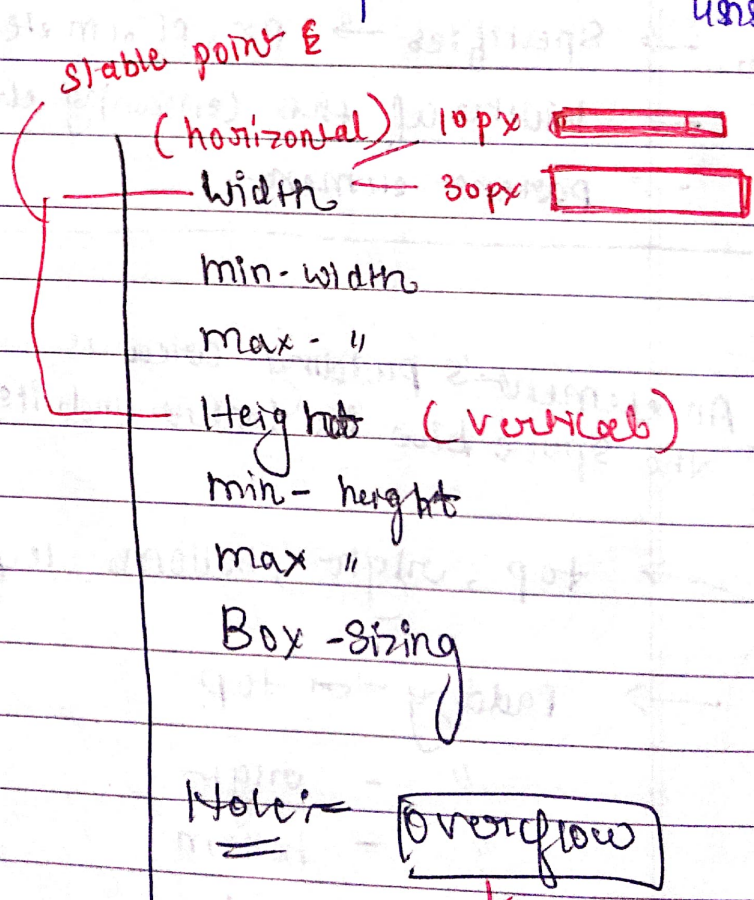 stable point
(horizontal) 10px
Width 30px
min-width
max- "
Height (vertical)
min-height
max "
Box-Sizing
Note:-
overflow